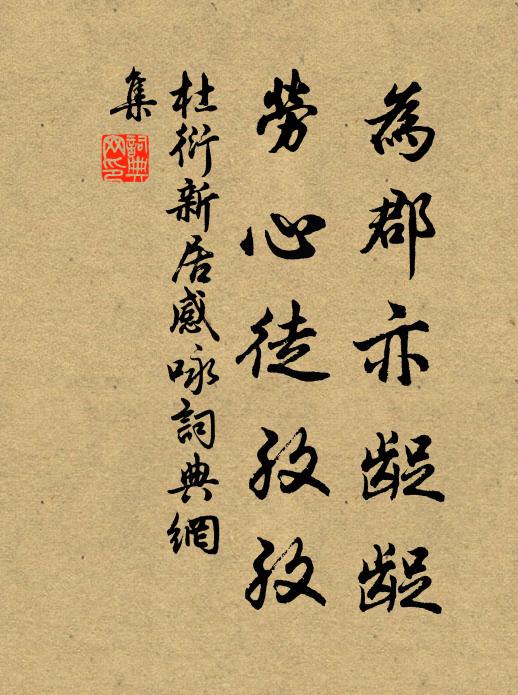 為郡亦齪齪
勞心徒孜孜
杜衍新居感咏詞典網
集
詞典
网印